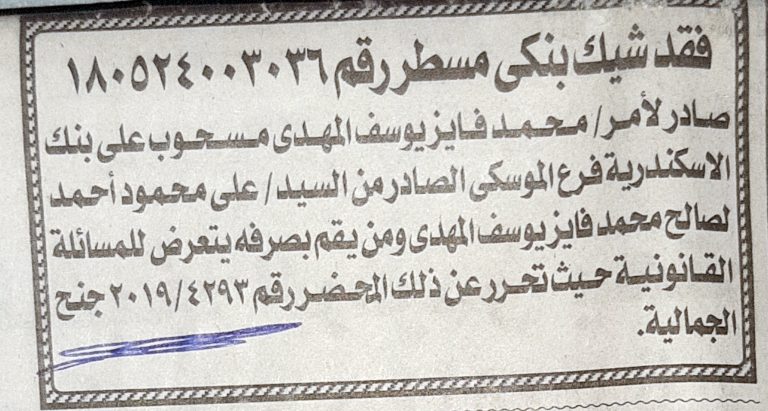 فقد شيك بنكى مسطر رقم ١٨٠٥٢٤٠٠٣٠٣٦
صادر لأمر/ محمد فايز يوسف المهدى مسحوب على بنك
الاسكندرية فرع الموسكى الصادر من السيد/ على محمود أحمد
لصالح محمد فايز يوسف المهدى ومن يقم بصرفه يتعرض للمسائلة
القانونية حيث تحرر عن ذلك المحضر رقم ٢٠١٩/٤٢٩٣ جنح
الجمالية.